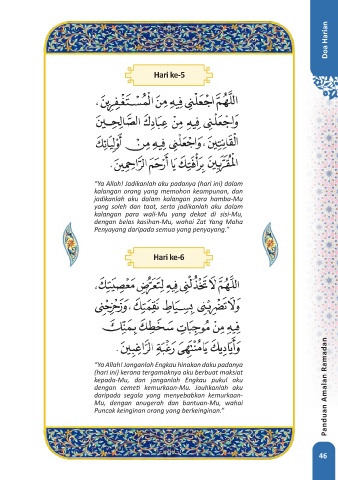 Doa Harian
Hari ke-5
اَللَّهُمَّ اجْعَلْنِي فِيهِ مِنَ الْمُسْتَغْفِرِينَ،
وَاجْعَلْنِي فِيهِ مِنْ عِبَادِكَ الصَّالِحِينَ
الْقَانِتِينَ، وَاجْعَلْنِي فِيهِ مِنْ أَوْلِيَائِكَ
الْمُقَرَّبِينَ، بِرَأْفَتِكَ يَا أَرْحَمَ الرَّاحِمِينَ.
"Ya Allah! Jadikanlah aku padanya (hari ini) dalam
kalangan orang yang memohon keampunan, dan
jadikanlah aku dalam kalangan para hamba-Mu
yang soleh dan taat, serta jadikanlah aku dalam
kalangan para wali-Mu yang dekat di sisi-Mu,
dengan belas kasihan-Mu, wahai Zat Yang Maha
Penyayang daripada semua yang penyayang."
Hari ke-6
اَللَّهُمَّ لَا تَخْذُلْنِي فِيهِ لِتَعَرُّضِ مَعْصِيَتِكَ،
وَلَا تَضْرِبْنِي بِسِيَاطِ نَقِمَتِكَ، وَزَحْزِحْنِي
فِيهِ مِنْ مُوجِبَاتِ سَخَطِكَ بِمَنِّكَ
وَأَيَادِيكَ يَا مُنْتَهَى رَغْبَةِ الرَّاغِبِينَ.
"Ya Allah! Janganlah Engkau hinakan daku padanya
(hari ini) kerana tergamaknya aku berbuat maksiat
kepada-Mu, dan janganlah Engkau pukul aku
dengan cemeti kemurkaan-Mu. Jauhkanlah aku
daripada segala yang menyebabkan kemurkaan-
Mu, dengan anugerah dan bantuan-Mu, wahai
Puncak keinginan orang yang berkeinginan."
Panduan Amalan Ramadan
46